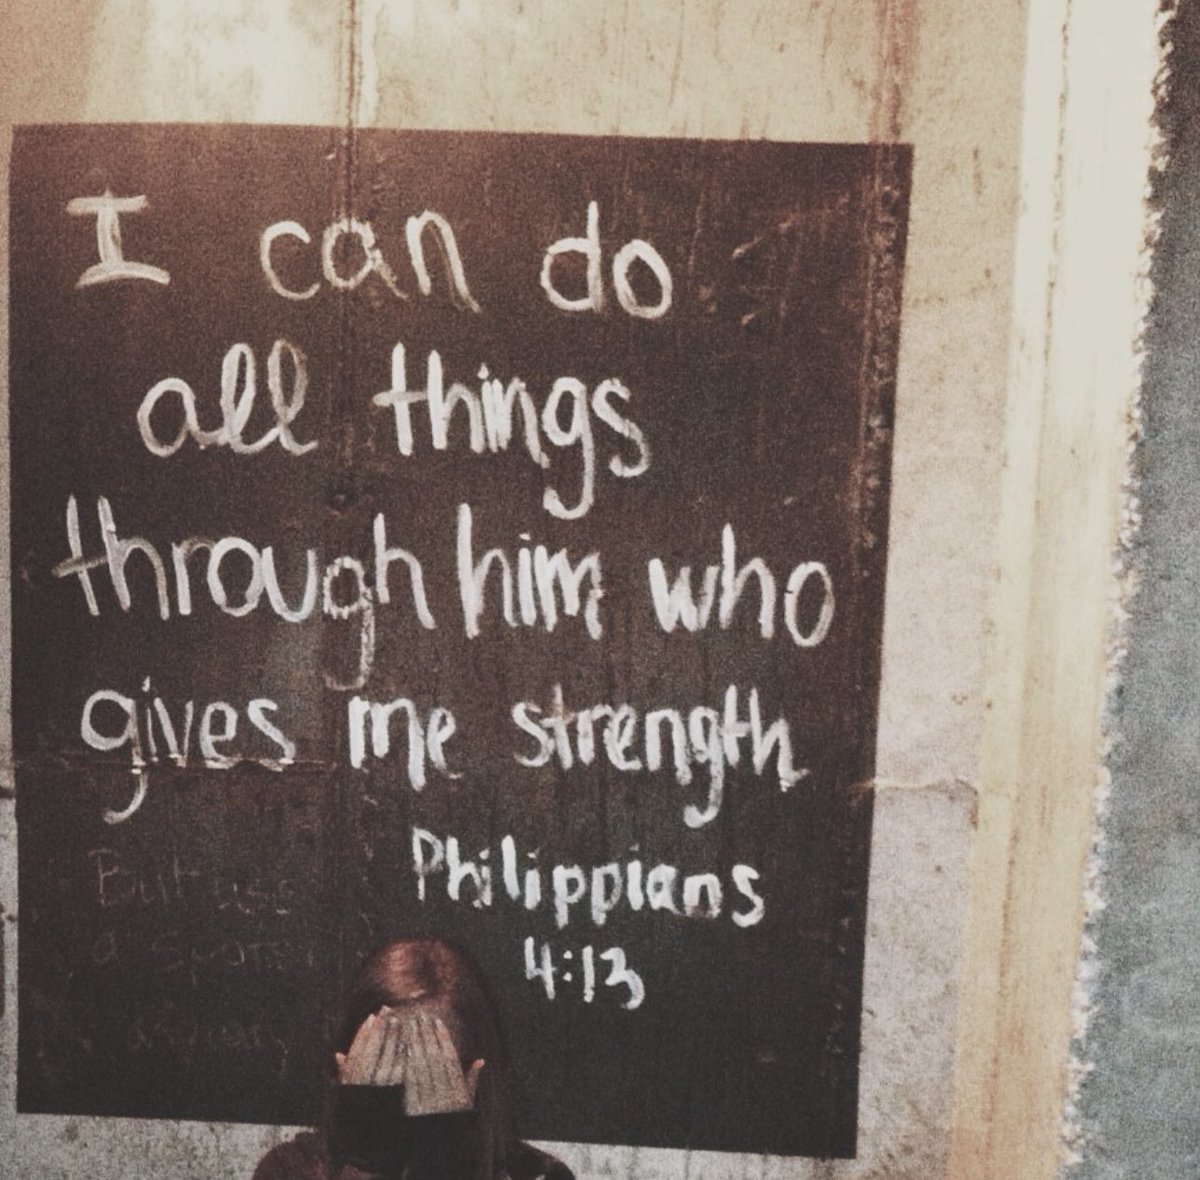 I can do
all things
through him who
gives me strength
Philippians
4:13